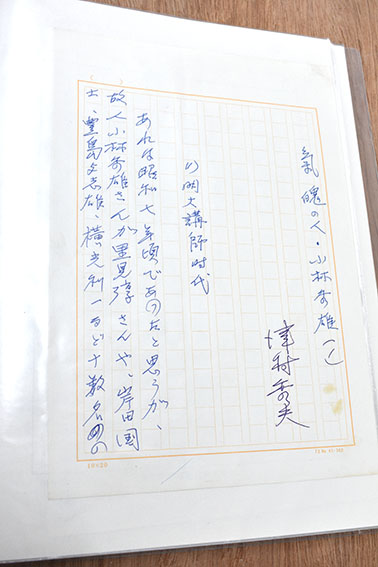 氣魄の人・小林秀雄(一)
津村秀夫
(1)明大講師時代
あれは昭和七年頃であつたと思うが、
故人小林秀雄さんが里見弴さんや、岸田国
士、豊島与志雄、横光利一など十数名のの